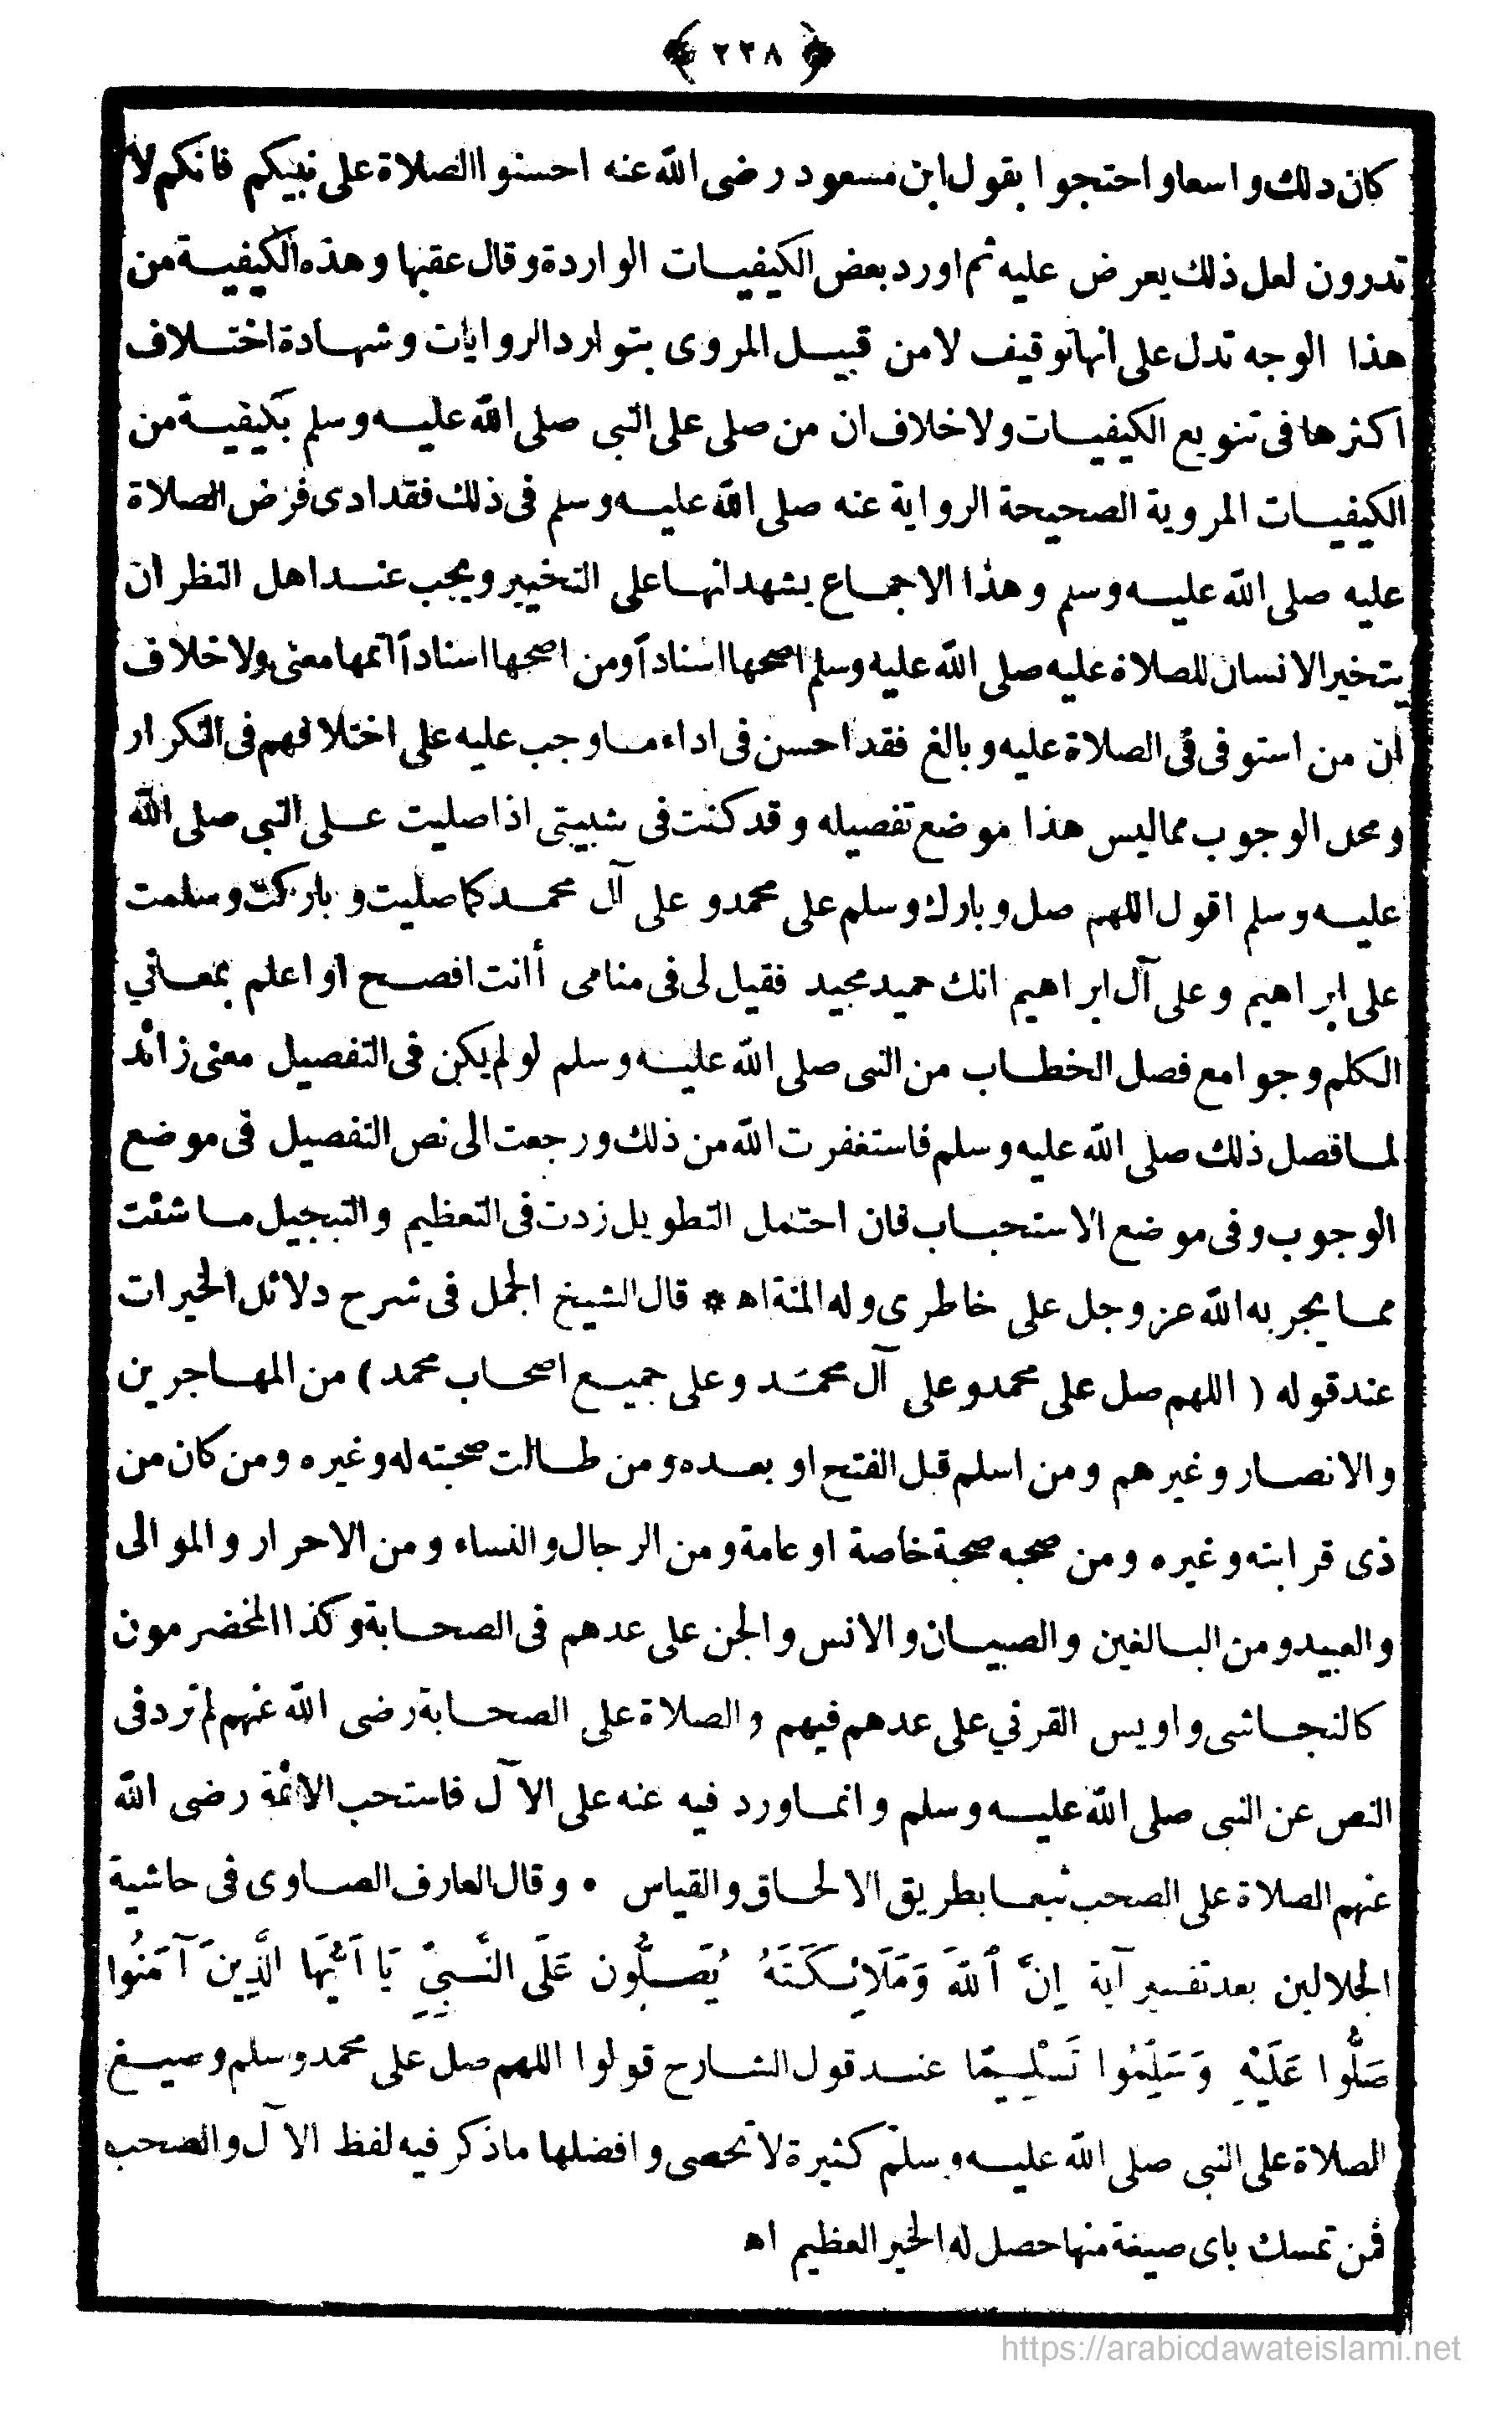 ﴿ ٢٣٨ ﴾
كان ذلك واسعا واحتجوا بقول ابن مسعود رضى الله عنه احسنوا الصلاة على نبيكم فانكم لا
تدرون لعل ذلك يعرض عليه ثم اورد بعض الكيفيات الواردة وقال عقبها وهذه الكيفية من
هذا الوجه تدل على انها توقيف لا من قبيل المروى بتوارد الروايات وشهادة اختلاف
اكثرها فى تنويع الكيفيات ولا خلاف ان من صلى على النبى صلى الله عليه وسلم بكيفية من
الكيفيات المروية الصحيحة الرواية عنه صلى الله عليه وسلم فى ذلك فقد ادى فرض الصلاة
عليه صلى الله عليه وسلم وهذا الاجماع يشهد انها على التخيير ويجب عند اهل النظر ان
يتخير الانسان للصلاة عليه صلى الله عليه وسلم اصحها اسناداً ومن اصحها اسناداً اتمها معنى ولا خلاف
ان من استوفى فى الصلاة عليه وبالغ فقد احسن فى اداء ما وجب عليه على اختلافهم فى التكرار
ومحل الوجوب مما ليس هذا موضع تفصيله وقد كنت فى شبيبتى اذا صليت على النبى صلى الله
عليه وسلم اقول اللهم صل وبارك وسلم على محمد وعلى آل محمد كما صليت وباركت وسلمت
على ابراهيم وعلى آل ابراهيم انك حميد مجيد فقيل لى فى منامى أأنت افصح او اعلم بمعانى
الكلم وجوامع فصل الخطاب من النبى صلى الله عليه وسلم لو لم يكن فى التفصيل معنى زائد
لما فصل ذلك صلى الله عليه وسلم فاستغفرت الله من ذلك ورجعت الى نص التفصيل فى موضع
الوجوب وفى موضع الاستحباب فان احتمل التطويل زدت فى التعظيم والتبجيل ما شئت
مما يجريه الله عز وجل على خاطرى وله المنة اه * قال الشيخ الجمل فى شرح دلائل الخيرات
عند قوله ( اللهم صل على محمد وعلى آل محمد وعلى جميع اصحاب محمد ) من المهاجرين
والانصار وغيرهم ومن اسلم قبل الفتح او بعده ومن طالت صحبته له وغيره ومن كان من
ذى قرابته وغيره ومن صحبه صحبة خاصة او عامة ومن الرجال والنساء ومن الاحرار والموالى
والعبيد ومن البالغين والصبيان والانس والجن على عدهم فى الصحابة وكذا المخضرمون
كالنجاشى واويس القرني على عدهم فيهم والصلاة على الصحابة رضى الله عنهم لم ترد فى
النص عن النبى صلى الله عليه وسلم وانما ورد فيه عنه على الآل فاستحب الائمة رضى الله
عنهم الصلاة على الصحب تبعا بطريق الالحاق والقياس • وقال العارف الصاوى فى حاشية
الجلالين بعد تفسير آية إِنَّ ٱللَّهَ وَمَلَائِكَتَهُ يُصَلُّونَ عَلَى النَّبِيِّ يَا أَيُّهَا الَّذِينَ آمَنُوا
صَلُّوا عَلَيْهِ وَسَلِّمُوا تَسْلِيمًا عند قول الشارح قولوا اللهم صل على محمد وسلم وصيغ
الصلاة على النبى صلى الله عليه وسلم كثيرة لا تحصى وافضلها ما ذكر فيه لفظ الآل والصحب
فمن تمسك باى صيغة منها حصل له الخير العظيم اه
https://arabicdawateislami.net